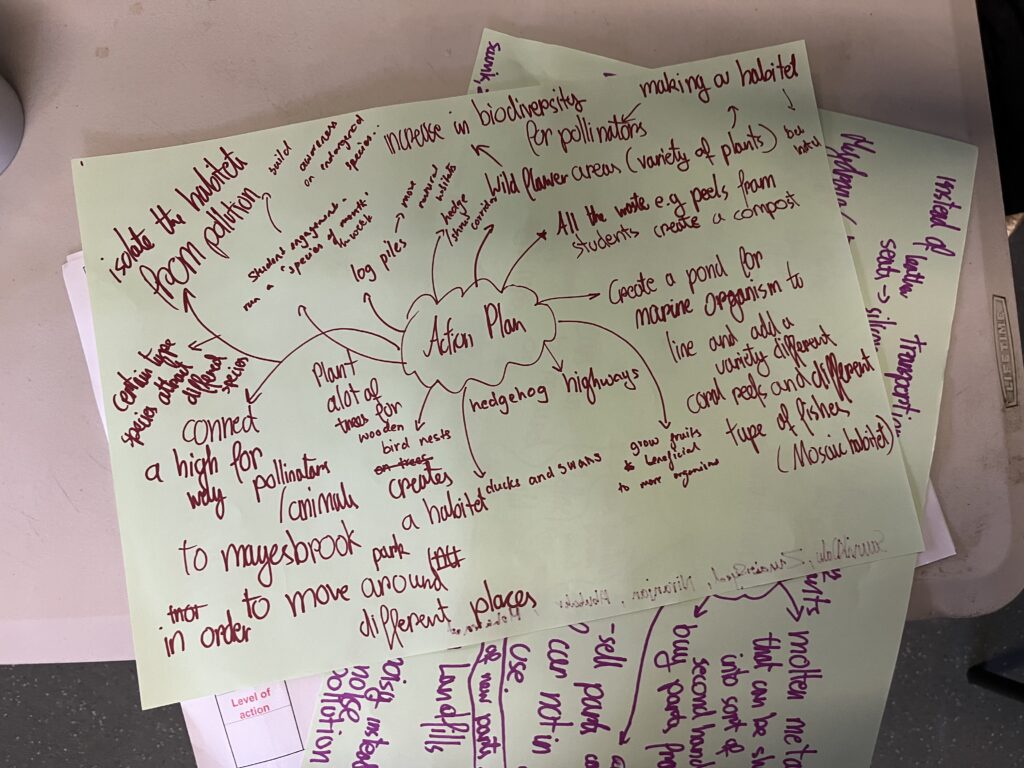 Action Plan
making a habitat
increase in biodiversity
for pollinators
Wild flower areas (variety of plants)
but
All the waste e.g peels from
students create a compost
Create a pond for
marine organism to
line and add a
variety different
and different
type of fishes
(Mosaic habitat)
hedgehog highways
grow fruits
beneficial
to more organisms
ducks and swans
Plant
alot of
trees for
wooden
bird nests
on trees
creates
a habitat
log piles → more
natural
habitats
hedge
corridor
student engagement -
run a "species of month"
awareness
on endangered
species..
build
isolate the habitats
from pollution
certain type
species attract
different
species
connect
a high for
way pollinators
/animals
to mayesbrook park
in order to move around
different places
instead of leather
seats →
Transportin
molten meta
that can be sh
into sort of
second hand
buy parts fro
-sell parts
can not in
use.
of new parts
Landfills
instead
noise
pollution
Level of
action
LIFETIME